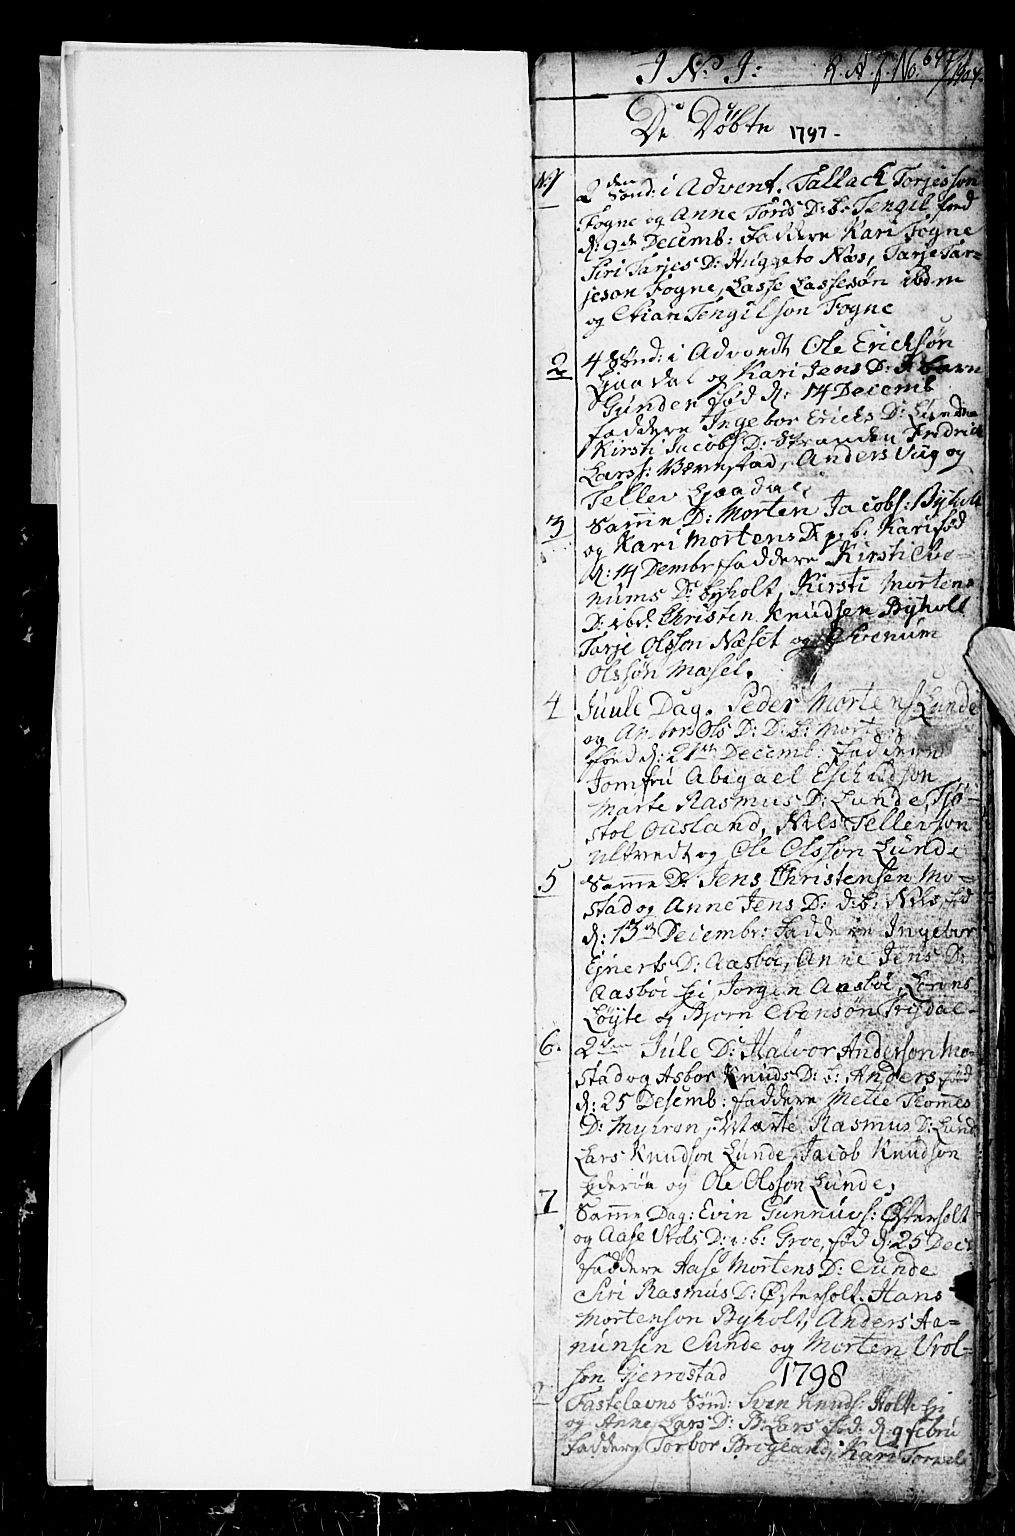 I N: I: R. A. J. No. 697/1904.
De Døbte 1797-
N:1 2den Sønd: i Advent. Tallack Torjesson
Fogne og Anne Tords D: b: Tengil, fød
d: 9de Decemb: Faddere Kari Fogne
Siri Tarjes D: Huggeto Næs, Tarje Tar-
jeson Fogne, Lasse Lassesøn ibdm
og Stian Tengilsson Fogne
2 4 Sønd: i Advendt Ole Ericksøn
Gjaadal og Kari Jens D: barn
Gunder fød d: 14 Decemb
Faddere Ingebor Ericks D: Lunden
Kirsti Jacobs D: Stranden Fredrick
Larss: Bærestad, Anders Ulig og
Tellev Gjaadal
3 Samme D: Morten Jacobs: Byholt
og Kari Mortens D: p: b: Kari fød
d: 14 Dembr, faddere Kirsti Aa-
nums D: Byholt, Kirsti Mortens
D: ibd: Christen Knudsen Byholt
Tarje Olsson Næset og Evenum
Olssøn Masel.
4 Juule Dag. Peder Mortens Lunde
og Anbor Ols D: D: b: Morten
fød d: 21de Decemb: Faddere
Jomfru Abigael Eschildson
Marte Rasmus D: Lunde, Tjø-
stol Ousland, Nils Tellevson
Ultvedt og Ole Olsson Lunde
5 Samme D: Jens Christensen Mo-
stad og Anne Jens D: d: b: Nils, fød
d: 13de Decembr: Faddere Ingebor
Ejnerts D: Aasbøe, Anne Jens D:
Aasbøe Jørgen Aasbøe, Lorens
Løyte og Bjørn Evensøn Trysdae-
6. 2den Jule D: Halvor Anderson Mo-
stad og Asbor Knuds D: b: Anders fød
d: 25 Desemb: faddere Mette Thomes
D: Myhren, Marte Rasmus D: Lund
Lars Knudson Lunde, Jacob Knudson
Ederøn og Ole Olsson Lunde,
7 Samme Dag: Evin Gunnuvs: Østerholt
og Aase Uvols D: d: b: Groe, fød d: 25 Dec:
Faddere Aase Mortens D: Sunde
Siri Rasmus D: Østerholt. Hans
Mortenson Byholt, Anders Aa-
nunsen Sunde og Morten Uvol-
søn Gjerrestad 1798
Fastelavns Sønd: Sven Knuds: Holt Ej
og Anne Lars D: B: Lars fød: d: 9 febru
Faddere Torbor Brogeland, Kari Tormels